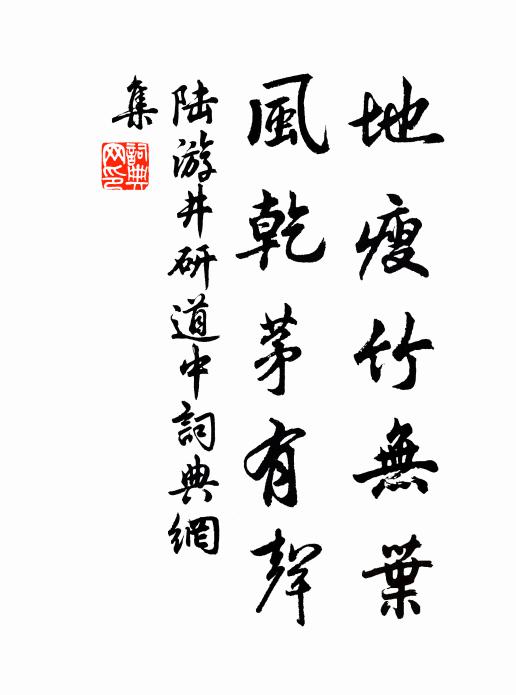 地瘦竹無葉
風乾茅有聲
陸游井研道中詞典網
集
詞典
网印